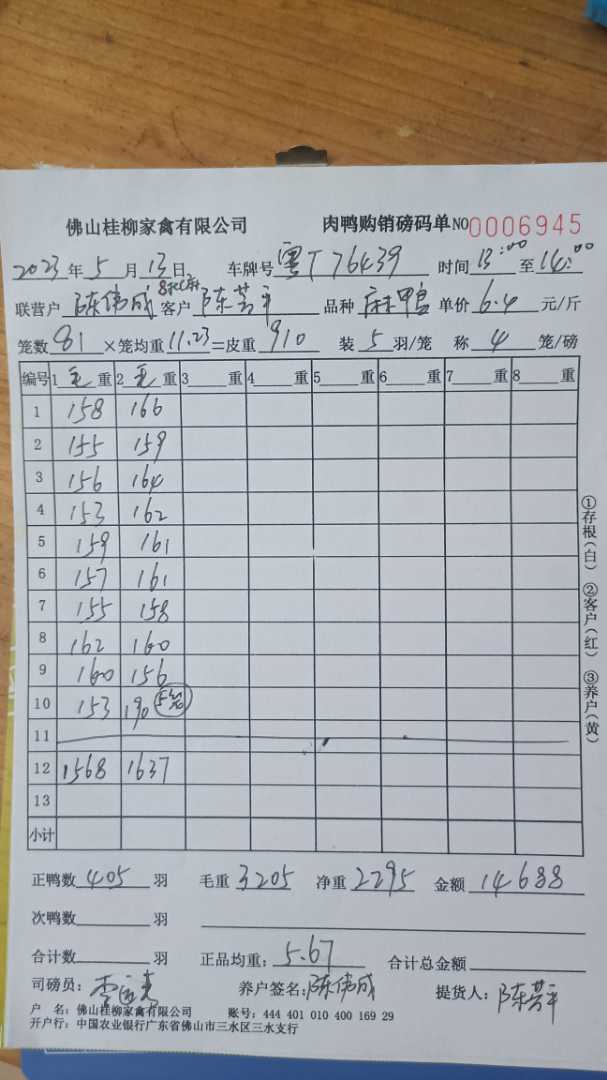 佛山桂柳家禽有限公司 肉鸭购销磅码单 NO 0006945
2023年5月13日 车牌号粤T76439 时间13:00至14:00
联营户陈伟成 客户陈芳平 品种麻鸭 单价6.4元/斤
笼数81×笼均重11.23=皮重910 装5羽/笼 称4笼/磅
编号 1毛重 2毛重 3 重 4 重 5 重 6 重 7 重 8 重
1 158 166
2 155 159
3 156 164
4 153 162
5 159 161
6 157 161
7 155 158
8 162 160
9 160 156
10 153 190 5笼
11
12 1568 1637
13
小计
①存根(白) ②客户(红) ③养户(黄)
正鸭数405羽 毛重3205 净重2295 金额14688
次鸭数 羽
合计数 羽 正品均重:5.67 合计总金额
司磅员: 养户签名:陈伟成 提货人:陈芳平
户 名:佛山桂柳家禽有限公司 账号:444 401 010 400 169 29
开户行:中国农业银行广东省佛山市三水区三水支行